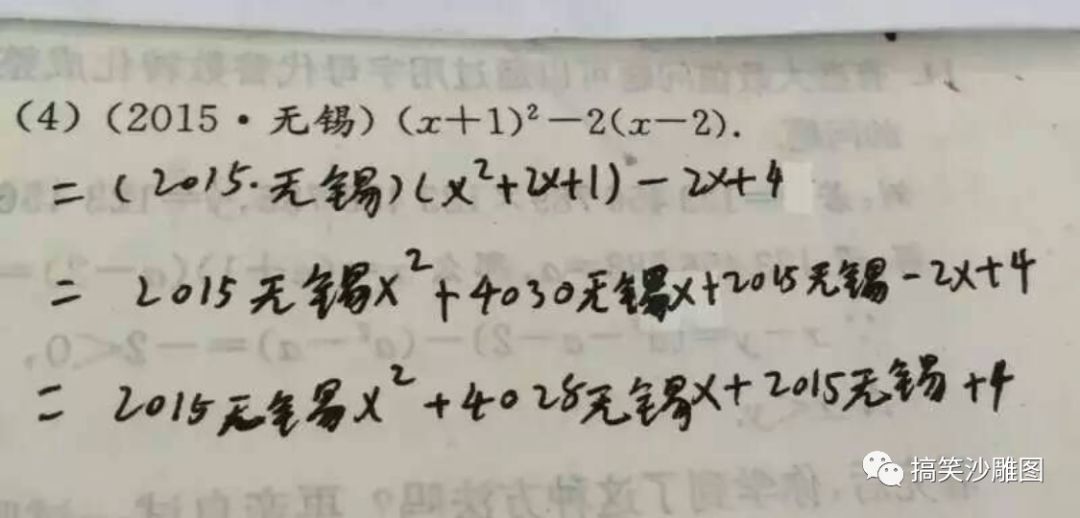 (4)(2015·无锡)(x+1)²-2(x-2).
=(2015·无锡)(x²+2x+1)-2x+4
= 2015无锡x²+4030无锡x+2015无锡-2x+4
= 2015无锡x²+4028无锡x+2015无锡+4
搞笑沙雕图